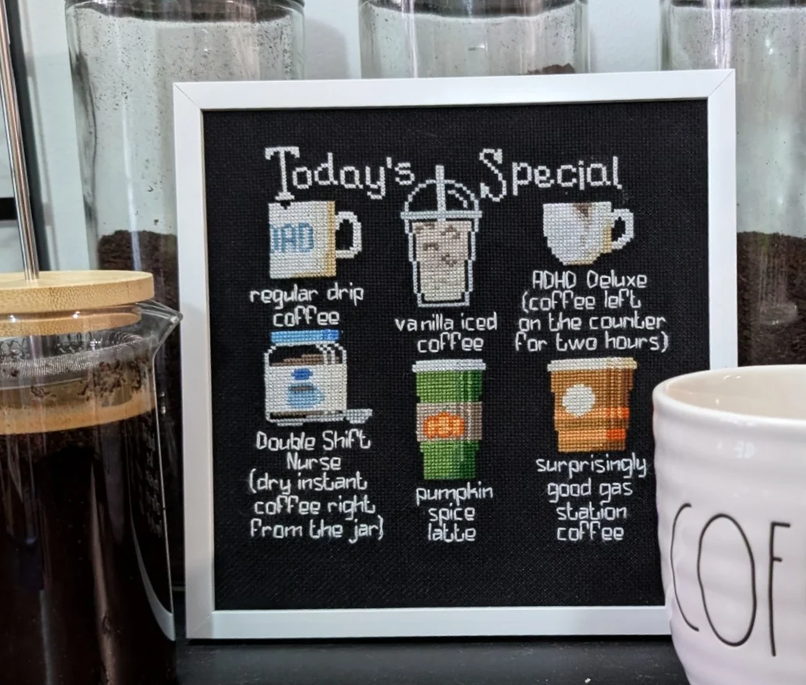 Today's Special
IAD
regular drip
coffee
vanilla iced
coffee
ADHD Deluxe
(coffee left
on the counter
for two hours)
Double Shift
Nurse
(dry instant
coffee right
from the jar)
pumpkin
spice
latte
surprisingly
good gas
station
coffee
COF